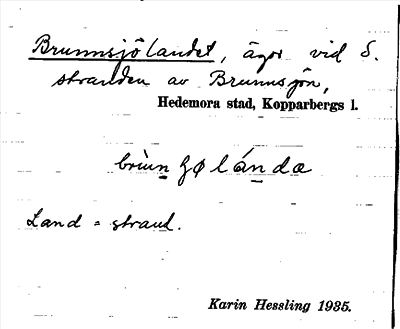 Brunnsjölandet, ägor vid S.
stranden av Brunnsjön,
Hedemora stad, Kopparbergs l.
brùun ʂø lánda
Land = strand.
Karin Hessling 1935.